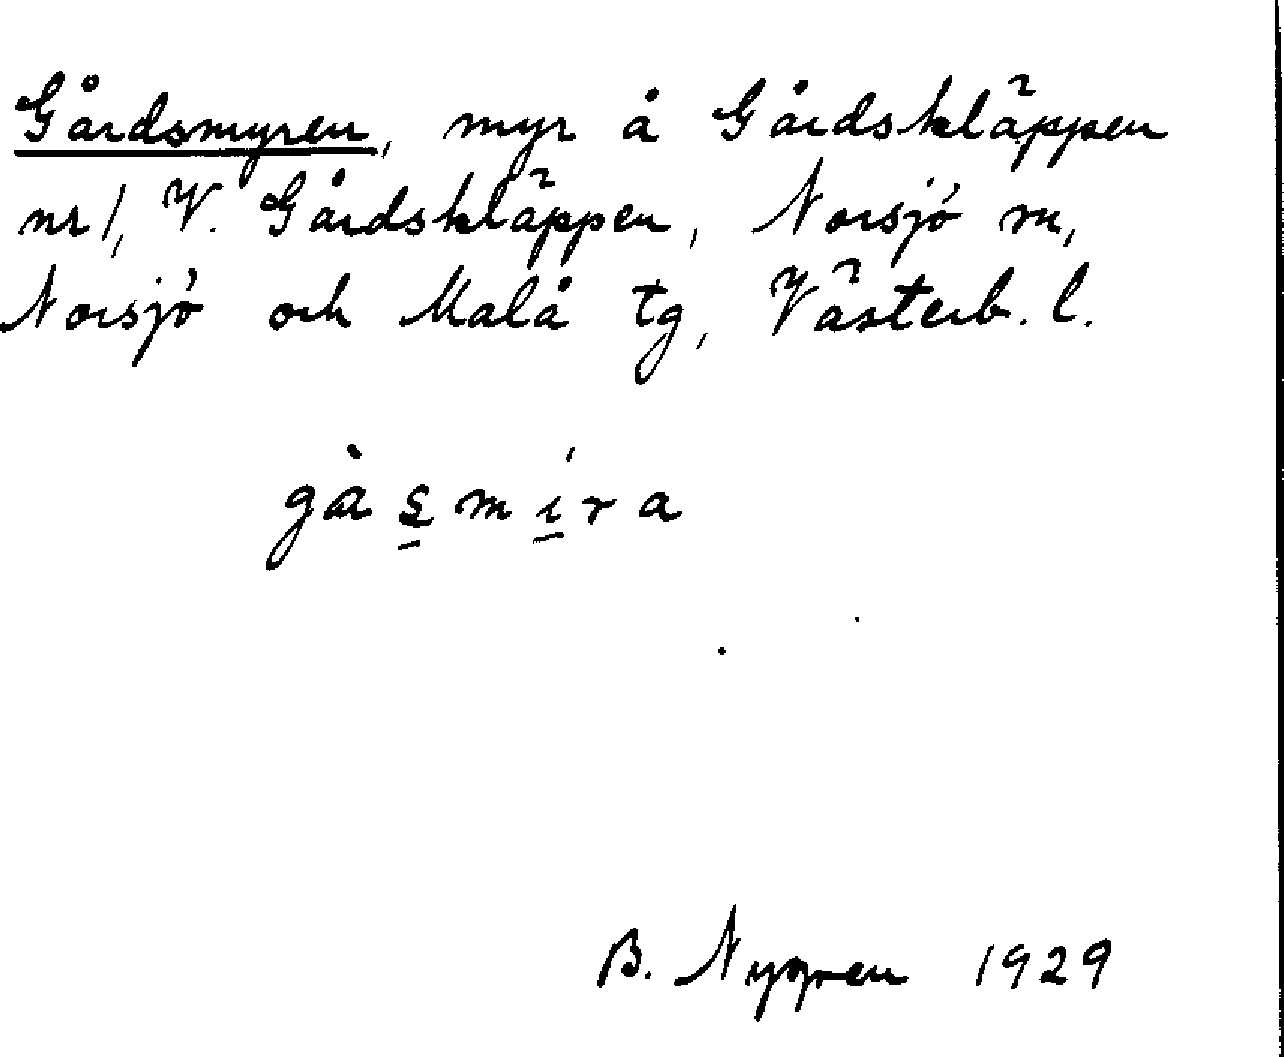 Gårdsmyren, myr å Gårdskläppen
nr 1, V. Gårdskläppen, Norsjö sn,
Norsjö och Malå tg, Västerb. l.
gàs̱mí̱ra
B. Nygren 1929